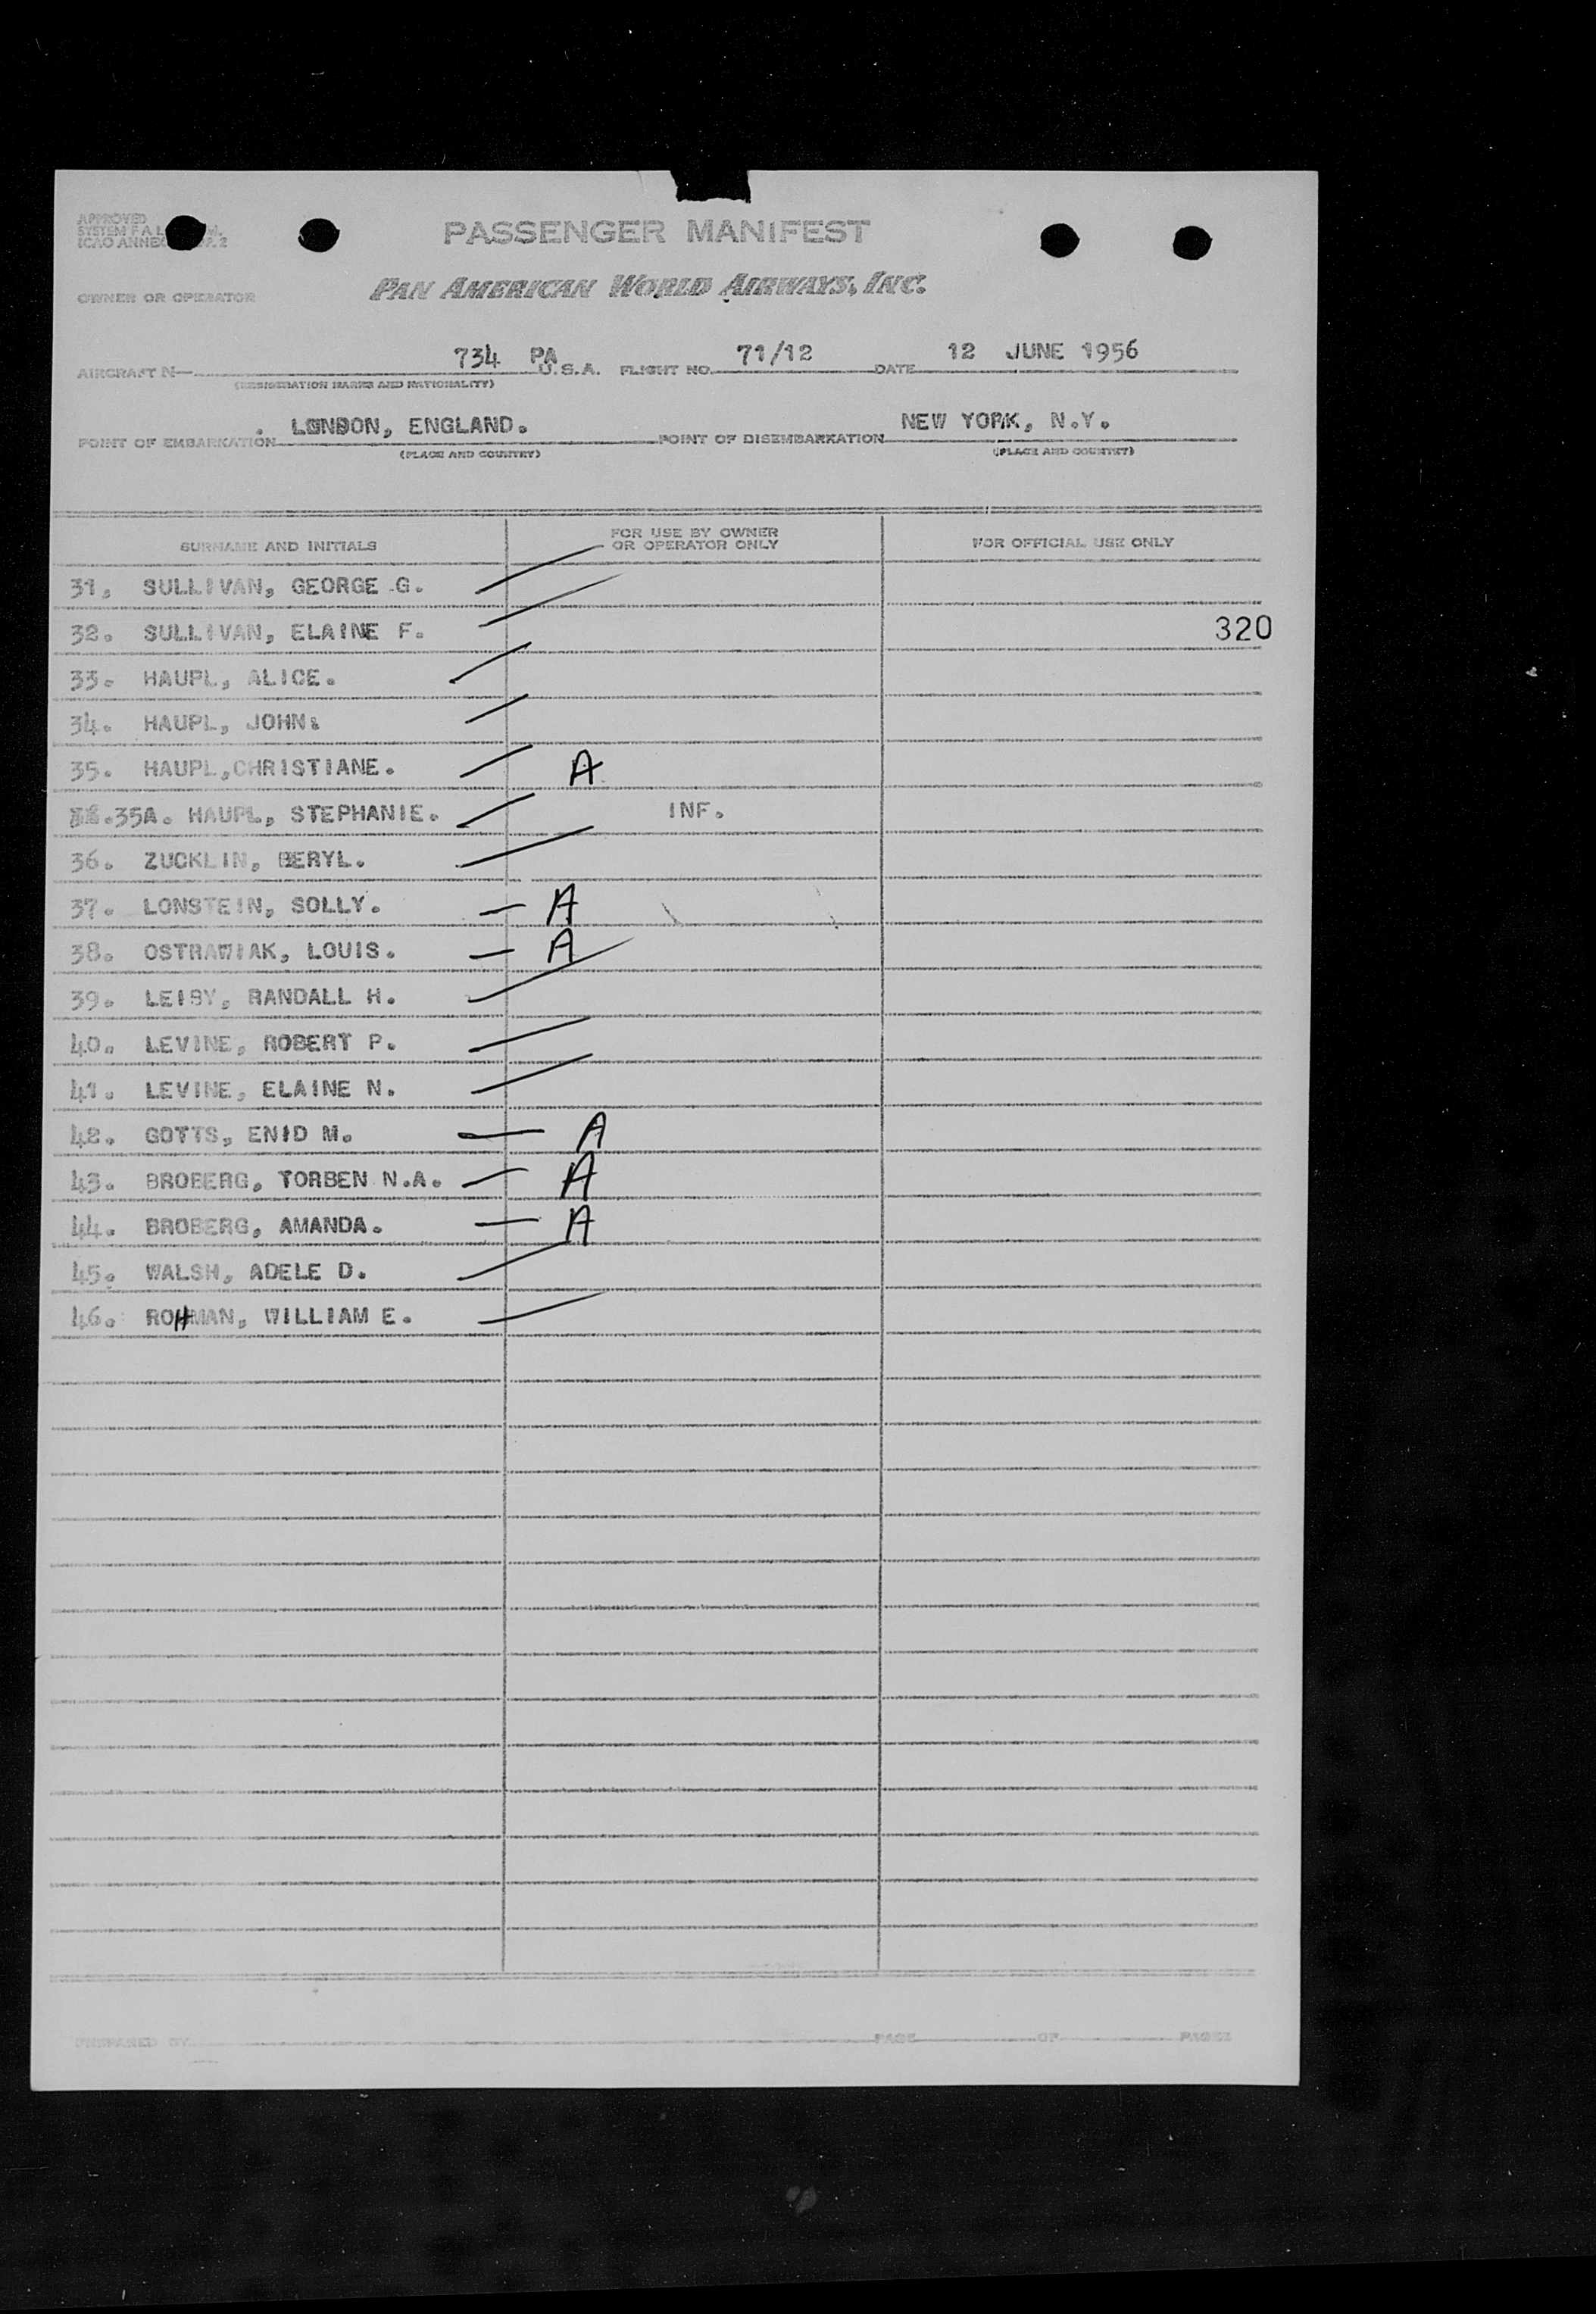 APPROVED
SYSTEM F.A.L.
ICAO ANNEX 2
PASSENGER MANIFEST
OWNER OR OPERATOR PAN AMERICAN WORLD AIRWAYS, INC.
AIRCRAFT N— 734 PA U.S.A. FLIGHT NO. 71/12 DATE 12 JUNE 1956
(REGISTRATION MARKS AND NATIONALITY)
POINT OF EMBARKATION . LONDON, ENGLAND. POINT OF DISEMBARKATION NEW YORK, N.Y.
(PLACE AND COUNTRY) (PLACE AND COUNTRY)
SURNAME AND INITIALS FOR USE BY OWNER OR OPERATOR ONLY FOR OFFICIAL USE ONLY
31. SULLIVAN, GEORGE G.
32. SULLIVAN, ELAINE F. 320
33. HAUPL, ALICE.
34. HAUPL, JOHN.
35. HAUPL,CHRISTIANE. A
35A. HAUPL, STEPHANIE. INF.
36. ZUCKLIN, BERYL.
37. LONSTEIN, SOLLY. A
38. OSTRAWIAK, LOUIS. A
39. LEIBY, RANDALL H.
40. LEVINE, ROBERT P.
41. LEVINE, ELAINE N.
42. GOTTS, ENID M. A
43. BROBERG, TORBEN N.A. A
44. BROBERG, AMANDA. A
45. WALSH, ADELE D.
46. ROHMAN, WILLIAM E.
PREPARED BY PAGE OF PAGES